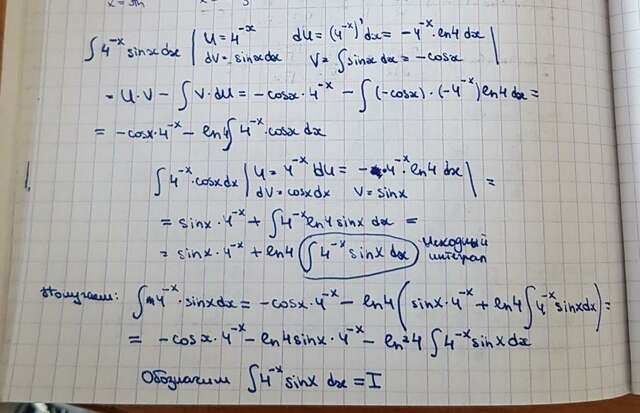 ∫ 4^{-x} sinx dx | U = 4^{-x} du = (4^{-x})' dx = -4^{-x} · ln4 dx
dV = sinx dx V = ∫ sinx dx = -cosx |
= U·V - ∫ V·dU = -cosx · 4^{-x} - ∫ (-cosx) · (-4^{-x}) ln4 dx =
= -cosx · 4^{-x} - ln4 ∫ 4^{-x} · cosx dx
∫ 4^{-x} · cosx dx | U = 4^{-x} du = -4^{-x} · ln4 dx
dV = cosx dx V = sinx | =
= sinx · 4^{-x} + ∫ 4^{-x} ln4 sinx dx =
= sinx · 4^{-x} + ln4 ∫ 4^{-x} sinx dx Исходный
интеграл
Получаем: ∫ 4^{-x} · sinx dx = -cosx · 4^{-x} - ln4 (sinx · 4^{-x} + ln4 ∫ 4^{-x} sinx dx) =
= -cosx · 4^{-x} - ln4 sinx · 4^{-x} - ln²4 ∫ 4^{-x} sinx dx
Обозначим ∫ 4^{-x} sinx dx = I